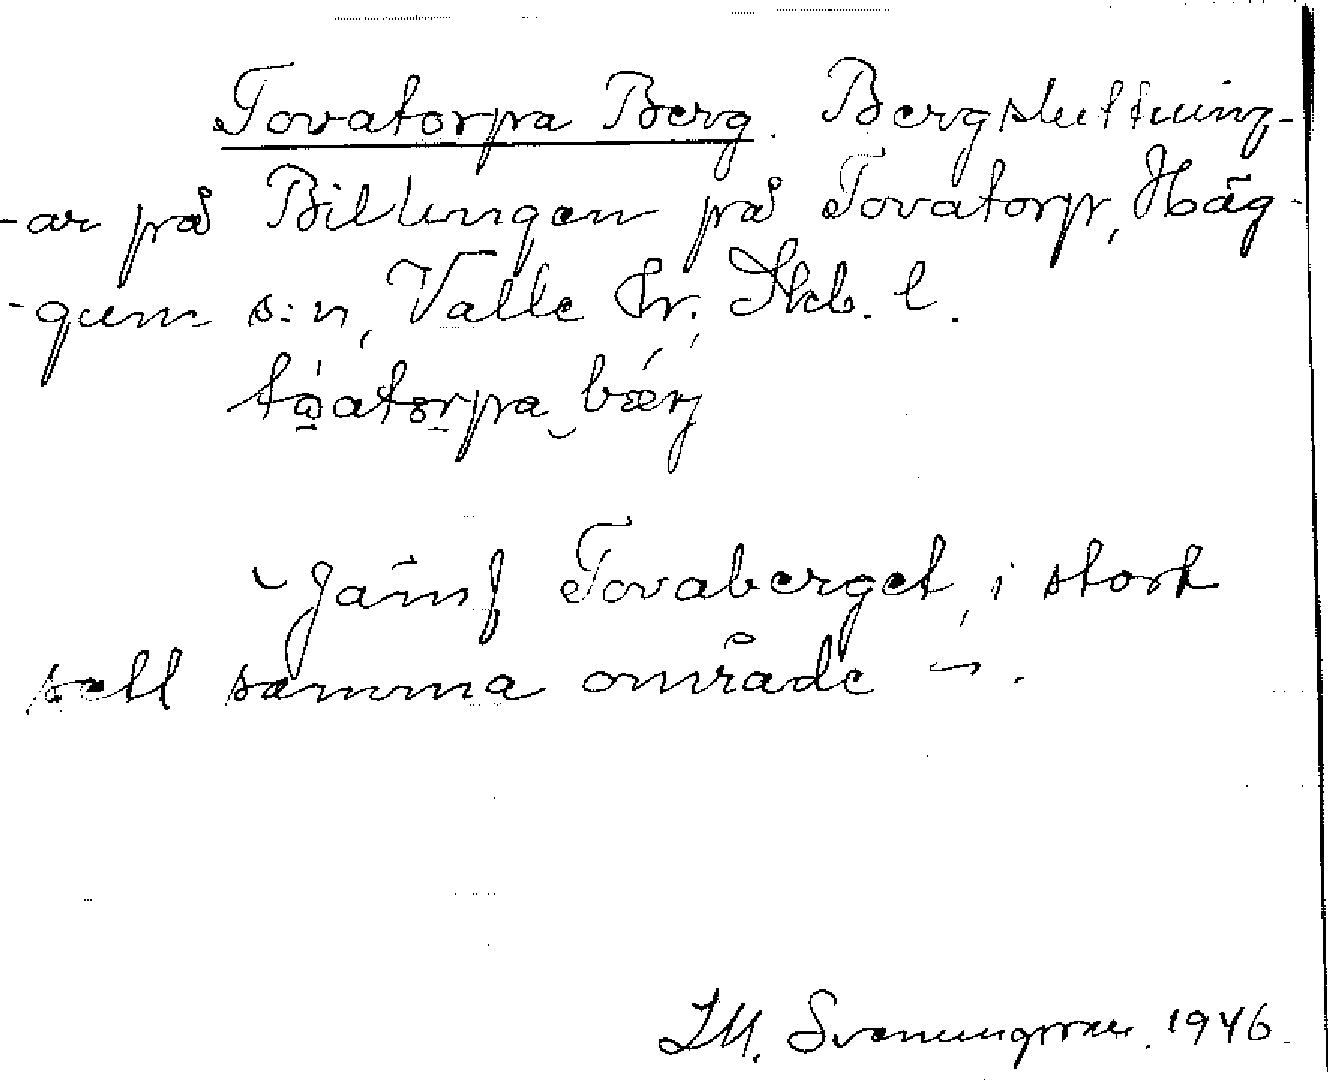 Tovatorpa Berg. Bergsluttning-
-ar på Billingen på Tovatorp, Häg-
-gum s:n, Valle hr., Skb. l.
tò̠ato̠rpa bǽrj
Jämf Tovaberget, i stort
sett samma område .
Svenungsson. 1946.